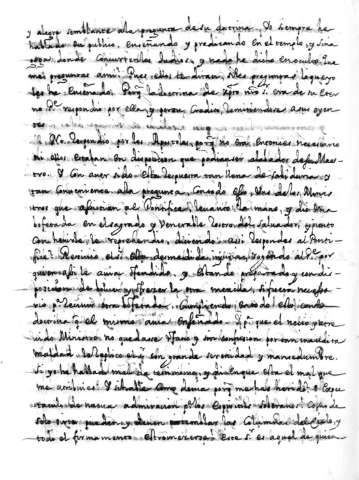 y alegre semblante ala pregunta de su doctrina, Yo siempre he
hablado en publico, Enseñando y predicando en el templo, y sina
goga donde concurren los Judios, y nada he dicho en oculto: que
me preguntas ami? Pues ellos te diran, si les preguntas lo que yo
les he Enseñado. Porq la doctrina de Xpto nro Sr. era de su Eter
no Pe. respondio por ella, y por su Credito, remitiendose a sus oyen
tes
No respondio por los Apostoles, porq no era entonces necesario
ni ellos estaban en disposicion que pudiesen ser alabados de su Maes
tro. Y con aver sido esta respuesta tan llena de sabiduria y
tan conveniente ala pregunta, con todo esso Uno de los Minis
tros que asistian al Pontifice, levanto la mano, y dio Una
bofetada en el sagrado y Venerable rostro del Salvador, y junto
con herirle, le reprehendio, diciendo: assi respondes al Ponti-
fice? Recivio el Sr. esta desmedida injuria, rogando al Pe. por
quien assi le avia ofendido, y estando preparado y con dis-
posicion de bolver y ofrecer la otra mexilla, si fuera necessa
rio pa. recivir otra bofetada. Cumpliendo en todo esto, con la
doctrina q. el mismo avia Enseñado. Y pa. que el necio y atre
vido Ministro no quedasse Ufano y sin confusion por tan inaudita
maldad le replico el Sr. con grande serenidad y mansedumbre.
Si yo he hablado mal da testimonio, y di en que esta el mal que
me atribuies. Y si hable como devia porq me has herido? O espec
taculo de nueva admiracion pa. los Espiritus soberanos! Como de
solo oirte pueden y deven temblar las Columnas del Cielo, y
todo el firmamento estremecerse! Este Sr. es aquel de quien